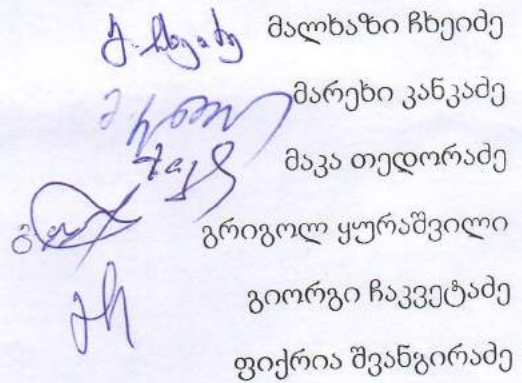 მალხაზი ჩხეიძე
მარეხი კანკაძე
მაკა თედორაძე
გრიგოლ ყურაშვილი
გიორგი ჩაკვეტაძე
ფიქრია შვანგირაძე